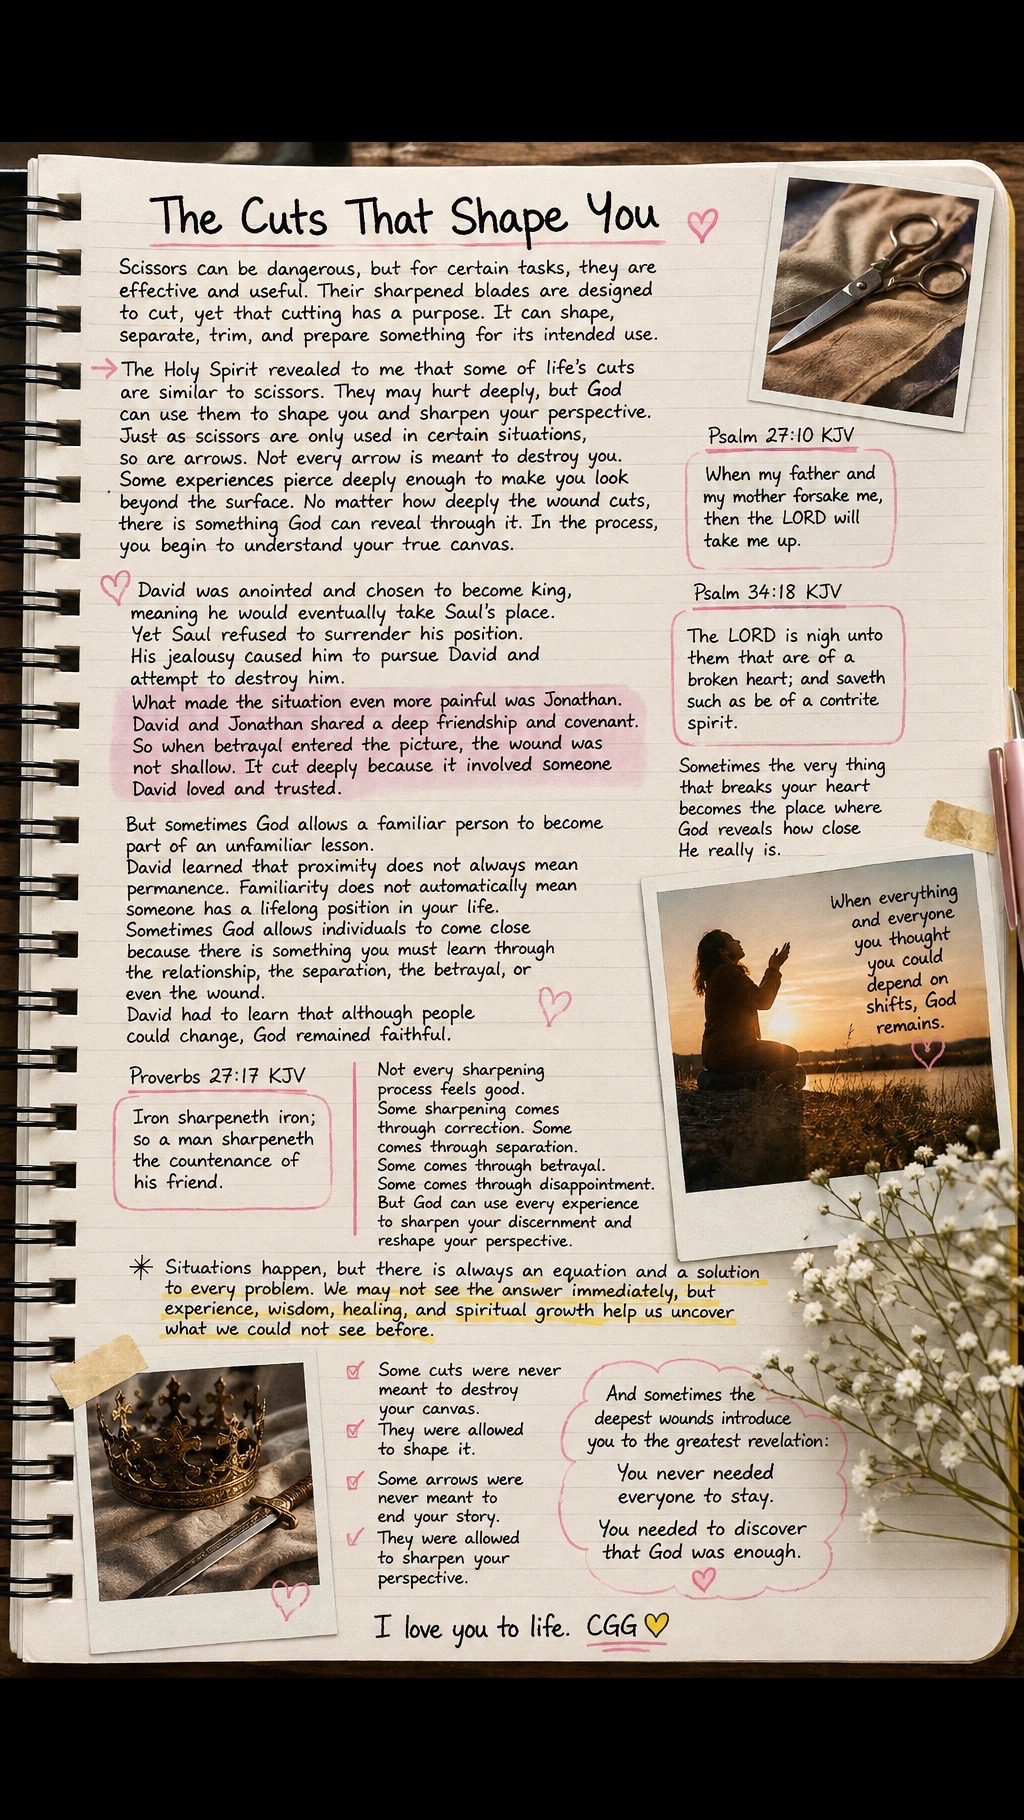 The Cuts That Shape You
Scissors can be dangerous, but for certain tasks, they are
effective and useful. Their sharpened blades are designed
to cut, yet that cutting has a purpose. It can shape,
separate, trim, and prepare something for its intended use.
The Holy Spirit revealed to me that some of life's cuts
are similar to scissors. They may hurt deeply, but God
can use them to shape you and sharpen your perspective.
Just as scissors are only used in certain situations,
so are arrows. Not every arrow is meant to destroy you.
Some experiences pierce deeply enough to make you look
beyond the surface. No matter how deeply the wound cuts,
there is something God can reveal through it. In the process,
you begin to understand your true canvas.
David was anointed and chosen to become king,
meaning he would eventually take Saul's place.
Yet Saul refused to surrender his position.
His jealousy caused him to pursue David and
attempt to destroy him.
What made the situation even more painful was Jonathan.
David and Jonathan shared a deep friendship and covenant.
So when betrayal entered the picture, the wound was
not shallow. It cut deeply because it involved someone
David loved and trusted.
But sometimes God allows a familiar person to become
part of an unfamiliar lesson.
David learned that proximity does not always mean
permanence. Familiarity does not automatically mean
someone has a lifelong position in your life.
Sometimes God allows individuals to come close
because there is something you must learn through
the relationship, the separation, the betrayal, or
even the wound.
David had to learn that although people
could change, God remained faithful.
Psalm 27:10 KJV
When my father and
my mother forsake me,
then the LORD will
take me up.
Psalm 34:18 KJV
The LORD is nigh unto
them that are of a
broken heart; and saveth
such as be of a contrite
spirit.
Sometimes the very thing
that breaks your heart
becomes the place where
God reveals how close
He really is.
When everything
and everyone
you thought
you could
depend on
shifts, God
remains.
Proverbs 27:17 KJV
Iron sharpeneth iron;
so a man sharpeneth
the countenance of
his friend.
Not every sharpening
process feels good.
Some sharpening comes
through correction. Some
comes through separation.
Some comes through betrayal.
Some comes through disappointment.
But God can use every experience
to sharpen your discernment and
reshape your perspective.
Situations happen, but there is always an equation and a solution
to every problem. We may not see the answer immediately, but
experience, wisdom, healing, and spiritual growth help us uncover
what we could not see before.
Some cuts were never
meant to destroy
your canvas.
They were allowed
to shape it.
Some arrows were
never meant to
end your story.
They were allowed
to sharpen your
perspective.
And sometimes the
deepest wounds introduce
you to the greatest revelation:
You never needed
everyone to stay.
You needed to discover
that God was enough.
I love you to life. CGG